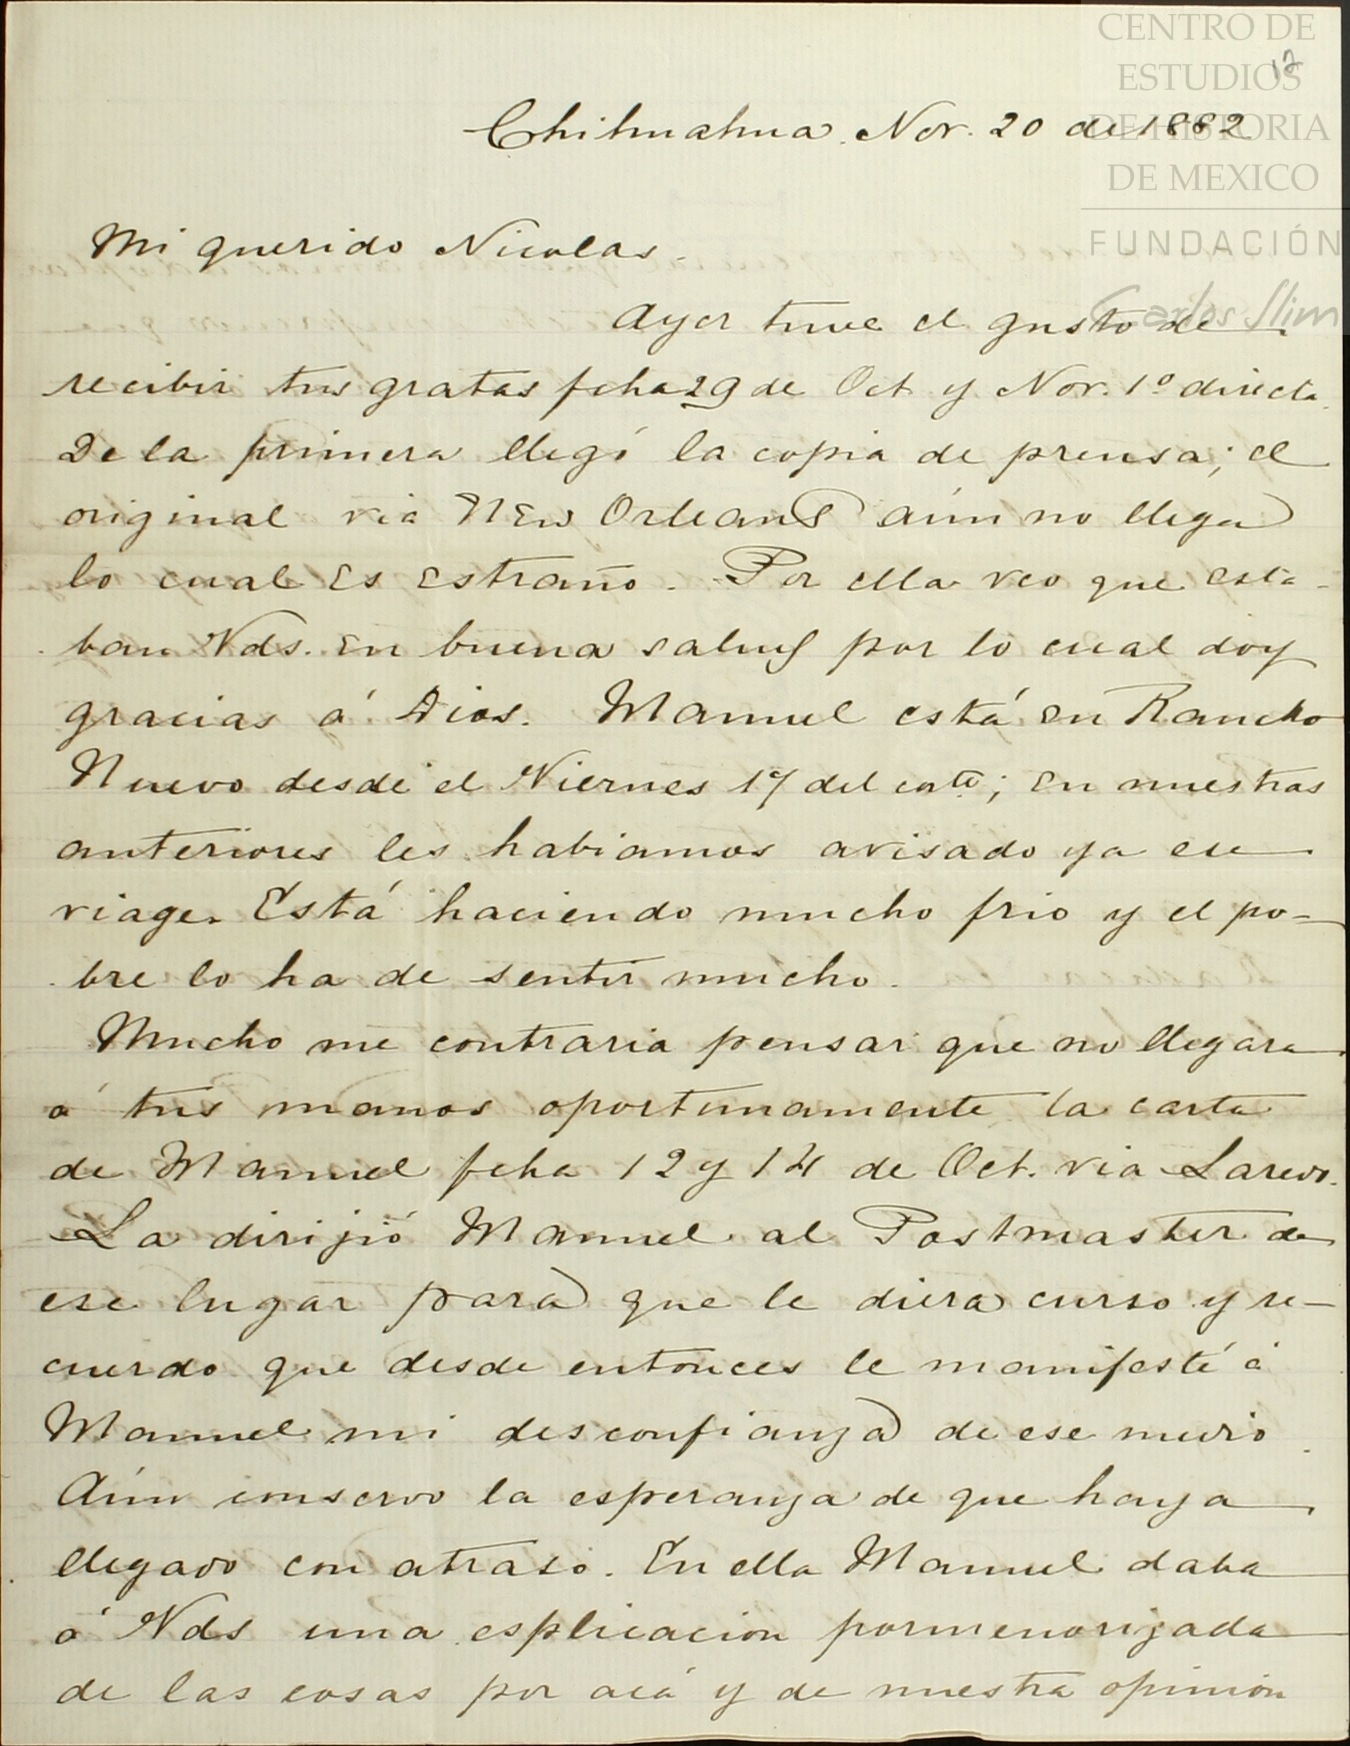 CENTRO DE
ESTUDIOS
DE HISTORIA
DE MEXICO
FUNDACIÓN
Carlos Slim
12
Chihuahua. Nov. 20 de 1882
Mi querido Nicolas.
Ayer tuve el gusto de
recibir tus gratas fcha 29 de Oct y Nov. 1º directa.
De la primera llegó la copia de prensa; el
original via New Orleans aún no llega
lo cual es estraño. Por ella veo que esta-
ban Vds. en buena salud por lo cual doy
gracias á Dios. Manuel está en Rancho
Nuevo desde el Viernes 17 del cnte; en nuestras
anteriores les habiamos avisado ya su
viage. Está haciendo mucho frio y el po-
bre lo ha de sentir mucho.
Mucho me contraria pensar que no llegara
á tus manos oportunamente la carta
de Manuel fcha 12 y 14 de Oct. via Laredo.
La dirijió Manuel al Postmaster de
ese lugar para que le diera curso y re-
cuerdo que desde entonces le manifesté á
Manuel mi desconfianza de ese medio.
Aún conservo la esperanza de que haya
llegado con atraso. En ella Manuel daba
á Vds una esplicacion pormenorizada
de las cosas por acá y de nuestra opinión